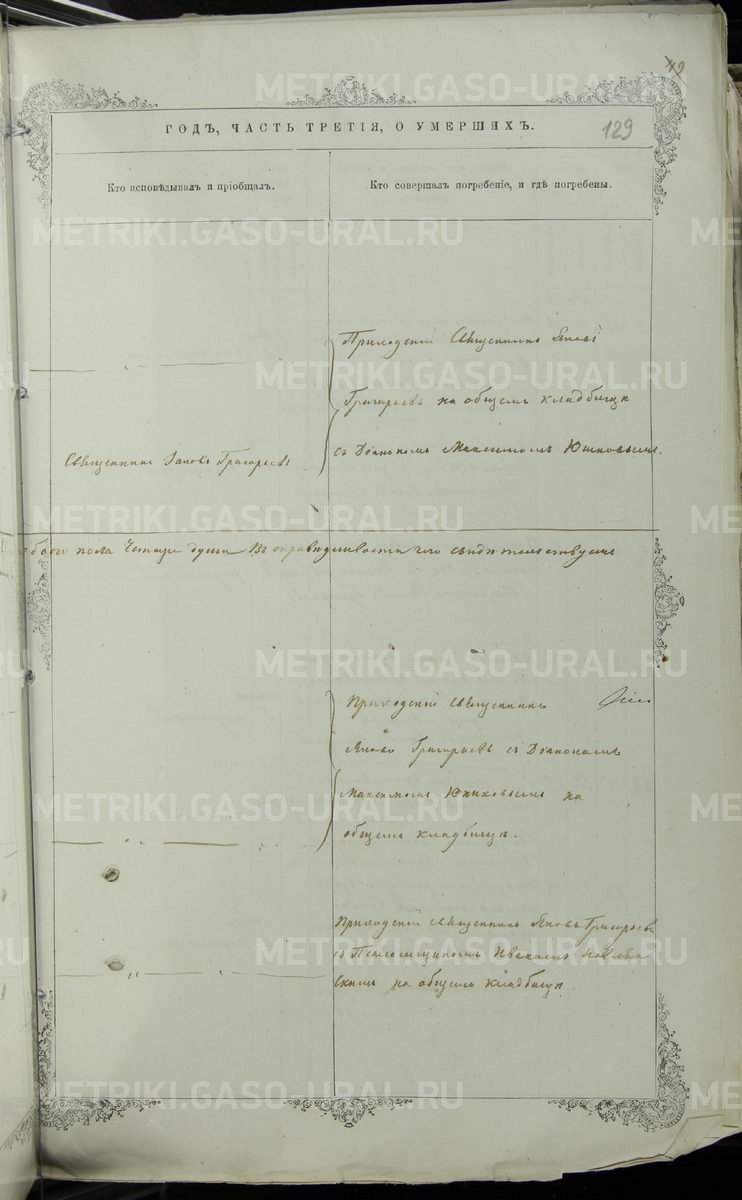 49
ГОДЪ, ЧАСТЬ ТРЕТІЯ, О УМЕРШИХЪ.
129
Кто исповѣдывалъ и пріобщалъ.
Кто совершалъ погребеніе, и гдѣ погребены.
Приходскій Священникъ Яковъ
Григорьевъ на общемъ кладбищѣ
съ Діакономъ Максимомъ Юшковымъ.
Священникъ Яковъ Григорьевъ
обоего пола Четыре души Въ справедливости чего свидѣтельствуемъ
Приходскій священникъ
Яковъ Григорьевъ съ Діакономъ
Максимомъ Юшковымъ на
общемъ кладбищѣ.
Приходскій священникъ Яковъ Григорьевъ
съ Псаломщикомъ Иваномъ
на общемъ кладбищѣ.
METRIKI.GASO-URAL.RU